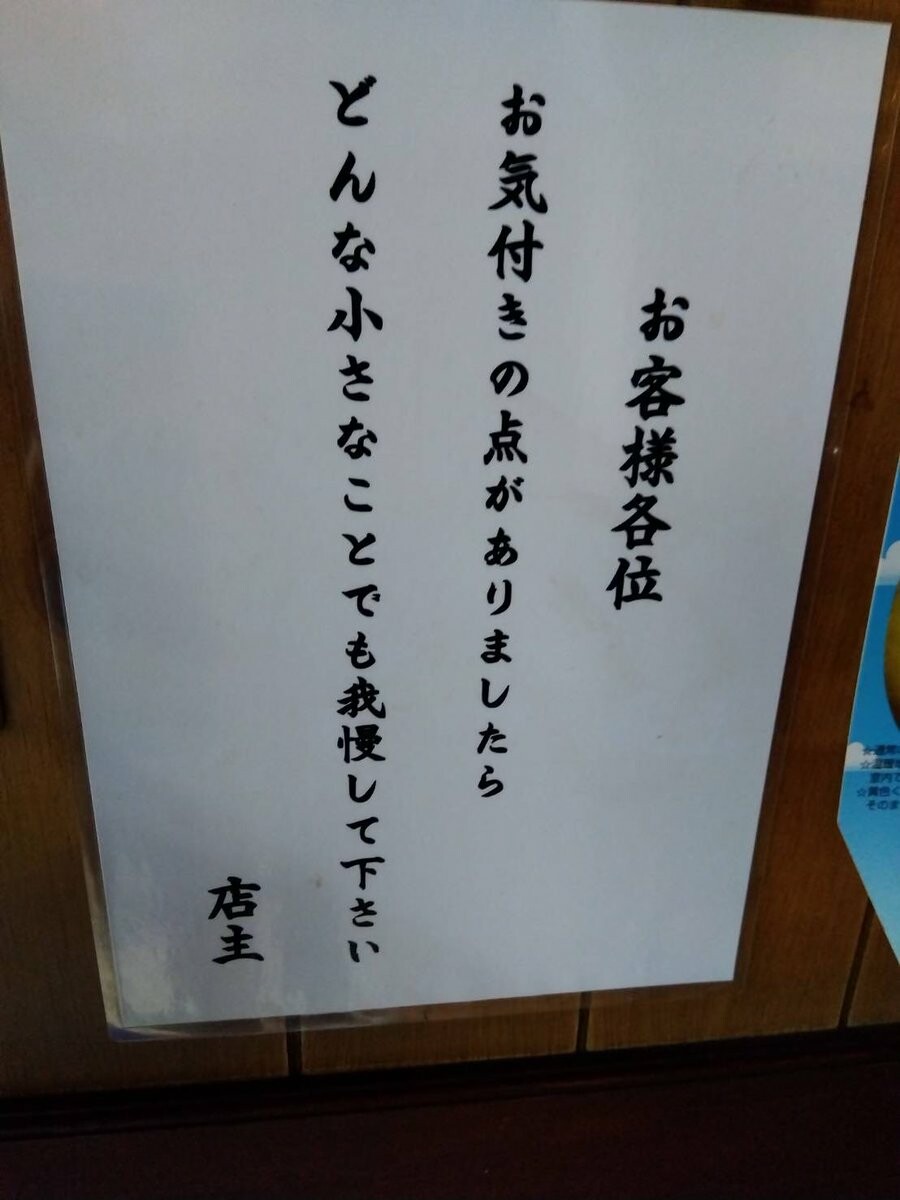 お客様各位
お気付きの点がありましたら
どんな小さなことでも我慢して下さい
店主